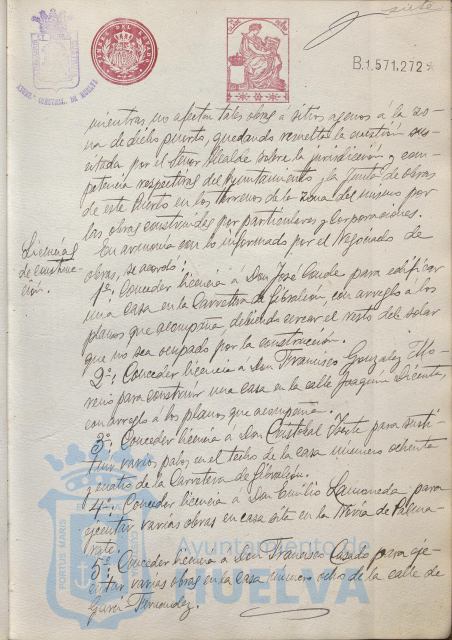 siete
TIMBRE DEL ESTADO
B.1.571.272
mientras no afecten tales obras a sitios ajenos á la zo-
na de dicho puerto, quedando resuelta la cuestión sus-
citada por el Señor Alcalde sobre la jurisdicción y com-
petencia respectivas del Ayuntamiento y la Junta de obras
de este Puerto en los terrenos de la zona del mismo por
las obras construidas por particulares y corporaciones.
Licencias
de construc-
ción.
En armonía con lo informado por el Negociado de
obras, se acordó:
1º: Conceder licencia á Don José Conde para edificar
una casa en la Carretera de Gibraleón, con arreglo á los
planos que acompaña, debiendo cercar el resto del solar
que no sea ocupado por la construcción.
2º: Conceder licencia a don Francisco González Mo-
reno para construir una casa en la calle Joaquín Dicenta,
con arreglo á los planos que acompaña.
3º: Conceder licencia á Don Cristobal para susti-
tuir varios palos en el techo de la casa número ochenta
y cuatro de la Carretera de Gibraleón.
4º: Conceder licencia á Don Emilio Lamoneda para
ejecutar varias obras en casa sita en la
5º: Conceder licencia á Don Francisco Casado para eje-
cutar varias obras en la casa número ocho de la calle de
Garci-Fernandez.
PORTUS MARIS
Ayuntamiento de
HUELVA